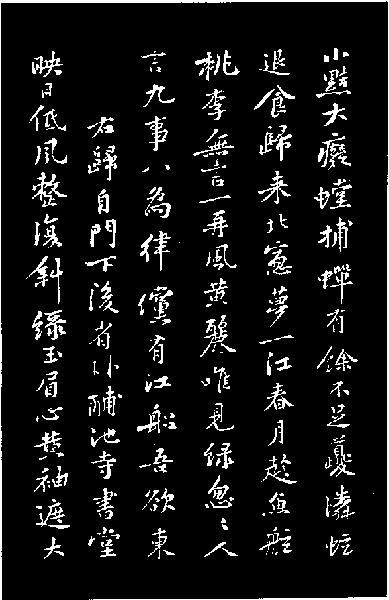 小黠大癡螳捕蟬有餘不足夔憐蚿
退食歸来北窻夢一江春月趁魚船
桃李無言一再風黄鸝唯見緑怱〻人
言九事八為律儻有江船吾欲東
右歸自門下後省卧酺池寺書堂
映日低風整復斜緑玉眉心黄袖遮大